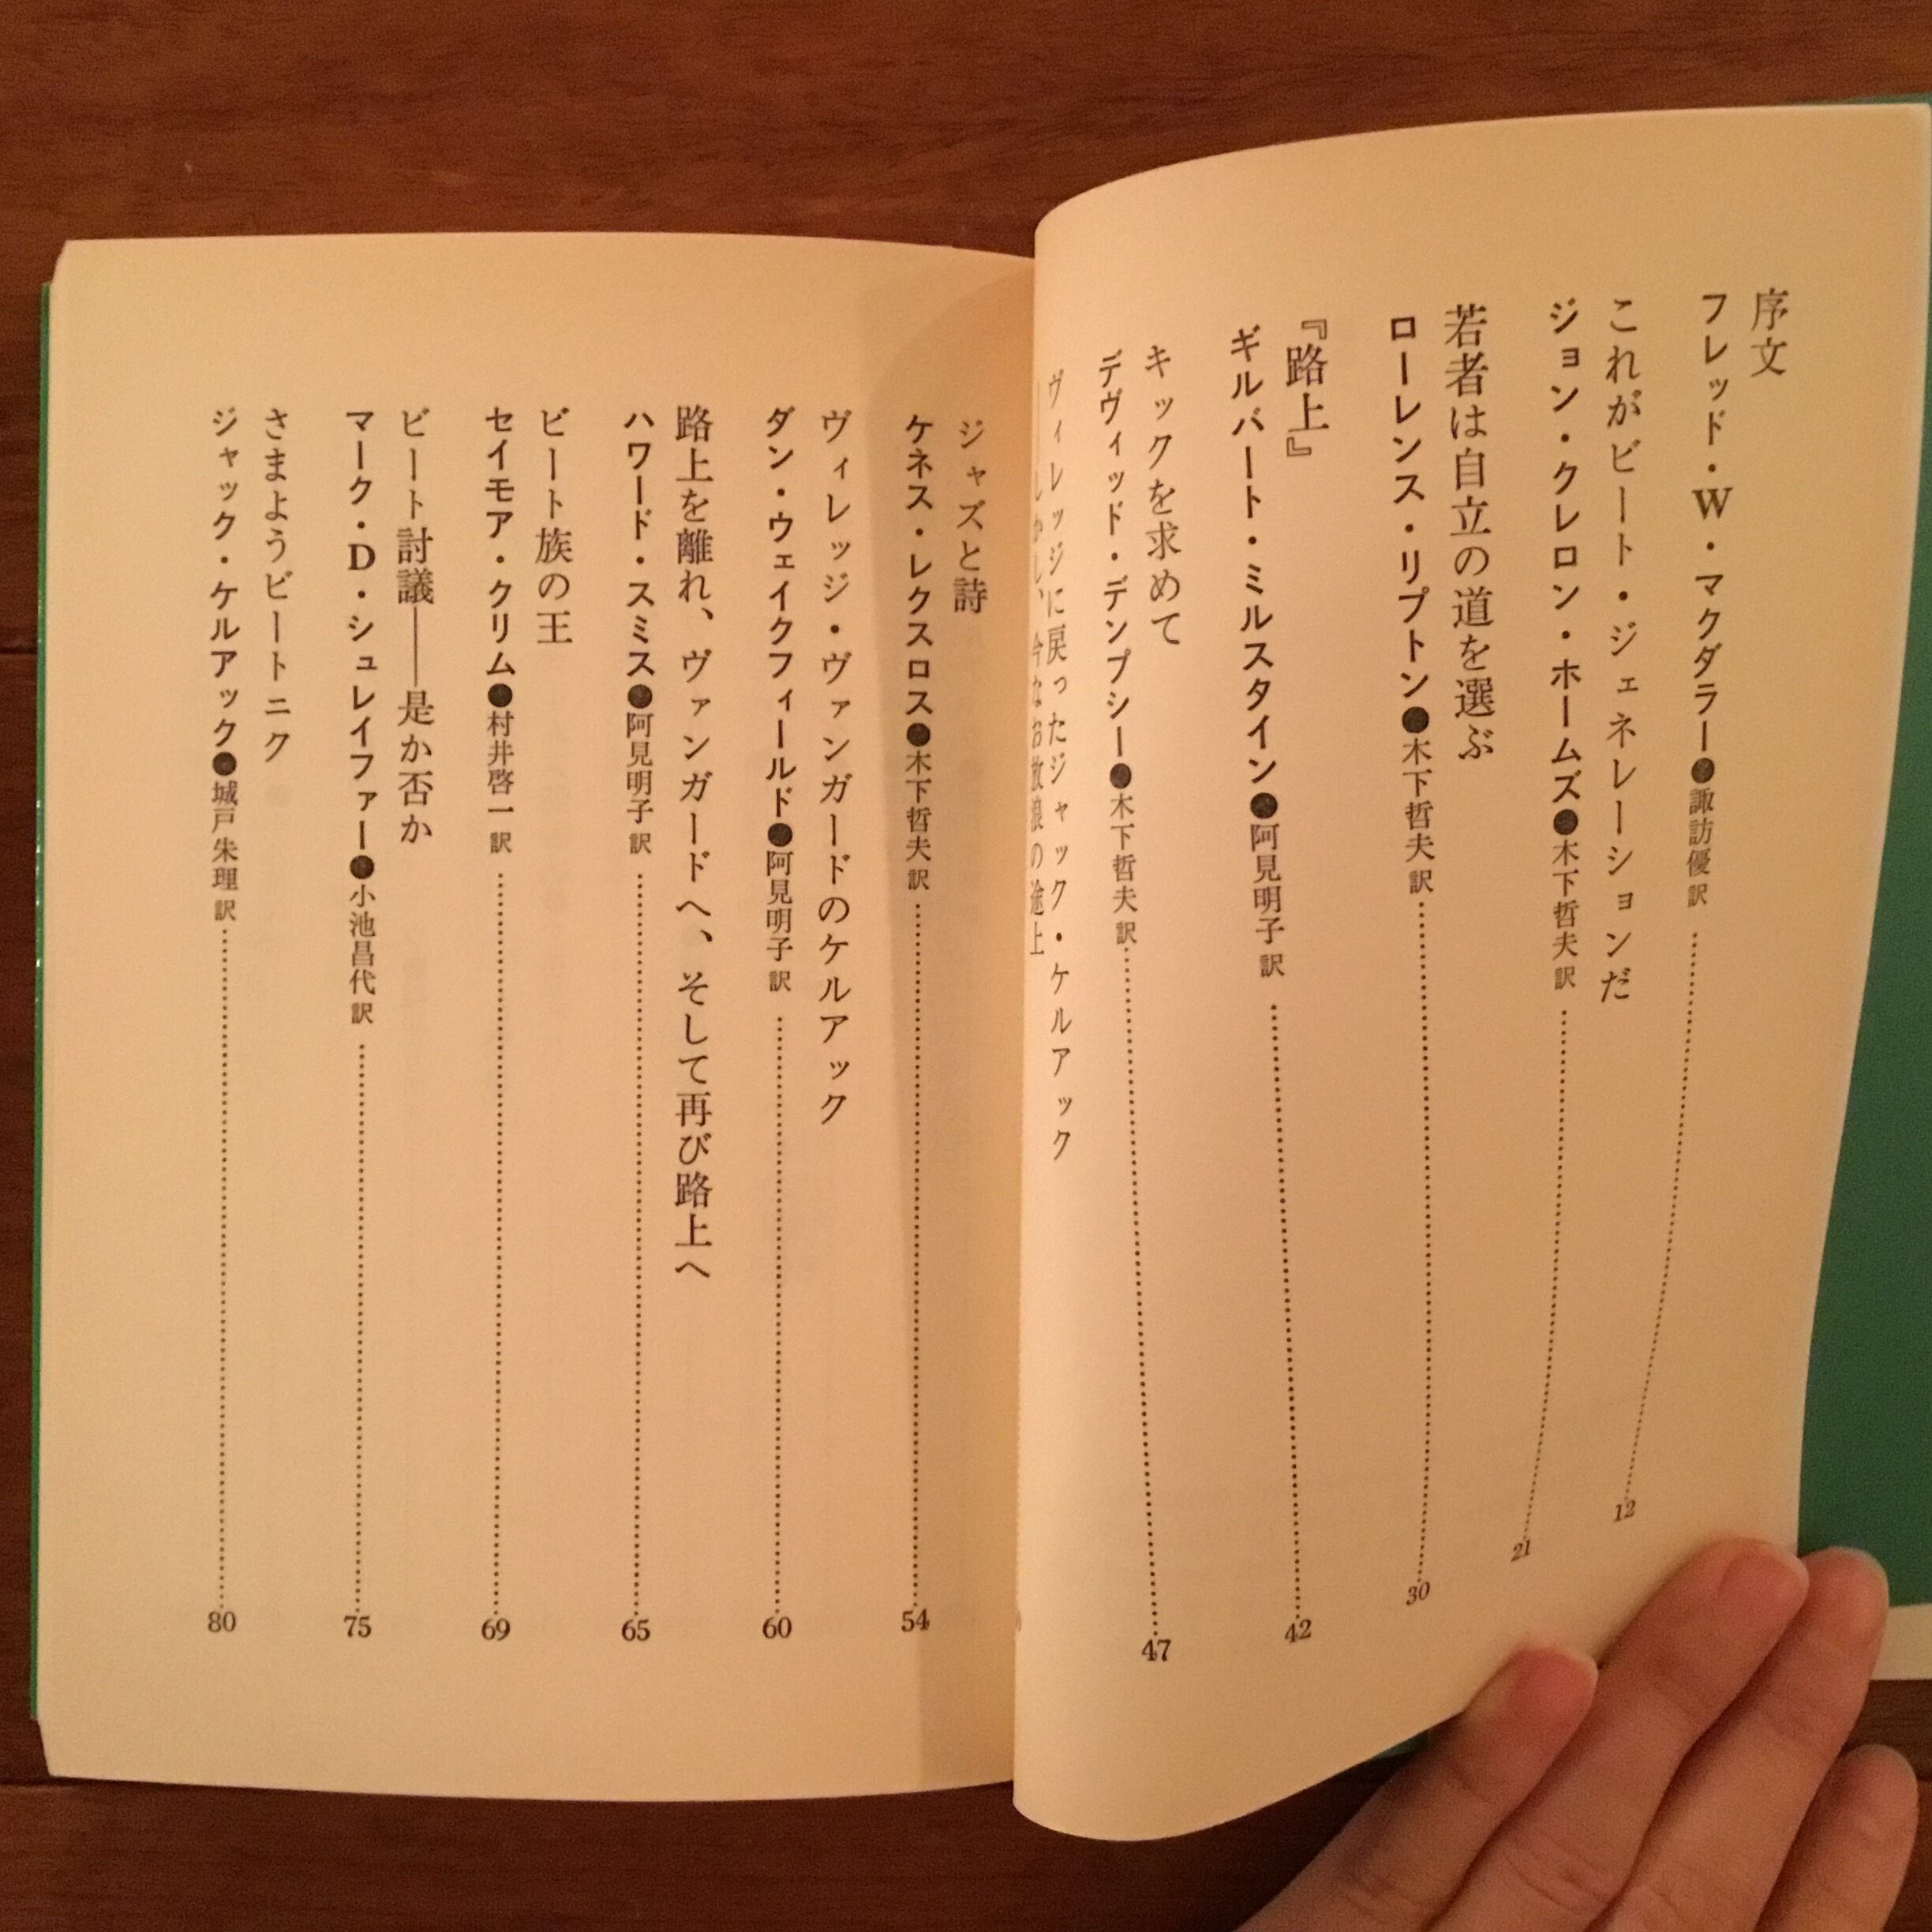 序文
フレッド・W・マクダラー●諏訪優 訳 12
これがビート・ジェネレーションだ
ジョン・クレロン・ホームズ●木下哲夫 訳 21
若者は自立の道を選ぶ
ローレンス・リプトン●木下哲夫 訳 30
『路上』
ギルバート・ミルスタイン●阿見明子 訳 42
キックを求めて
デヴィッド・デンプシー●木下哲夫 訳 47
ヴィレッジに戻ったジャック・ケルアック
――しかし、今なお放浪の途上
ジャズと詩
ケネス・レクスロス●木下哲夫 訳 54
ヴィレッジ・ヴァンガードのケルアック
ダン・ウェイクフィールド●阿見明子 訳 60
路上を離れ、ヴァンガードへ、そして再び路上へ
ハワード・スミス●阿見明子 訳 65
ビート族の王
セイモア・クリム●村井啓一 訳 69
ビート討議――是か否か
マーク・D・シュレイファー●小池昌代 訳 75
さまようビートニク
ジャック・ケルアック●城戸朱理 訳 80